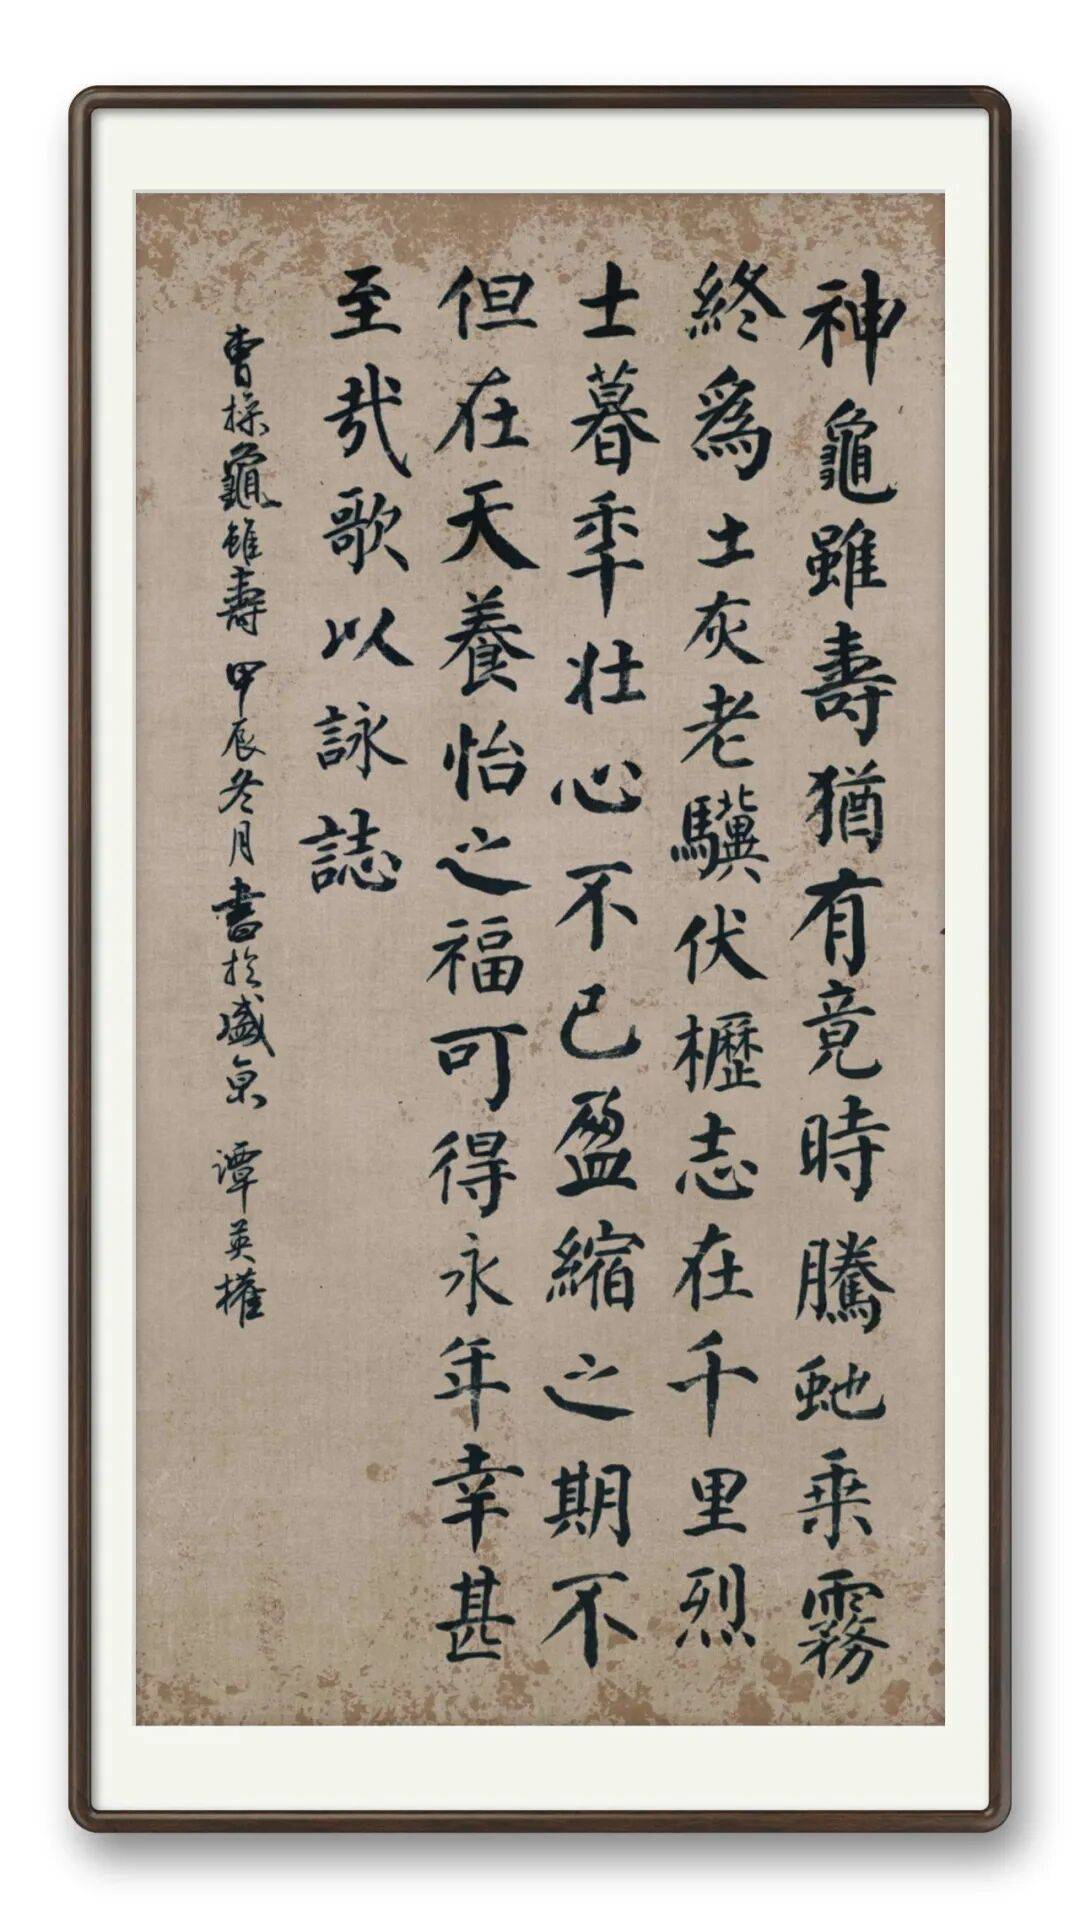 神龜雖壽猶有竟時騰虵乗霧
終爲土灰老驥伏櫪志在千里烈
士暮秊壯心不已盈縮之期不
但在天養怡之福可得永年幸甚
至哉歌以詠誌
曹操龜雖壽 甲辰冬月書於盛京 譚英權